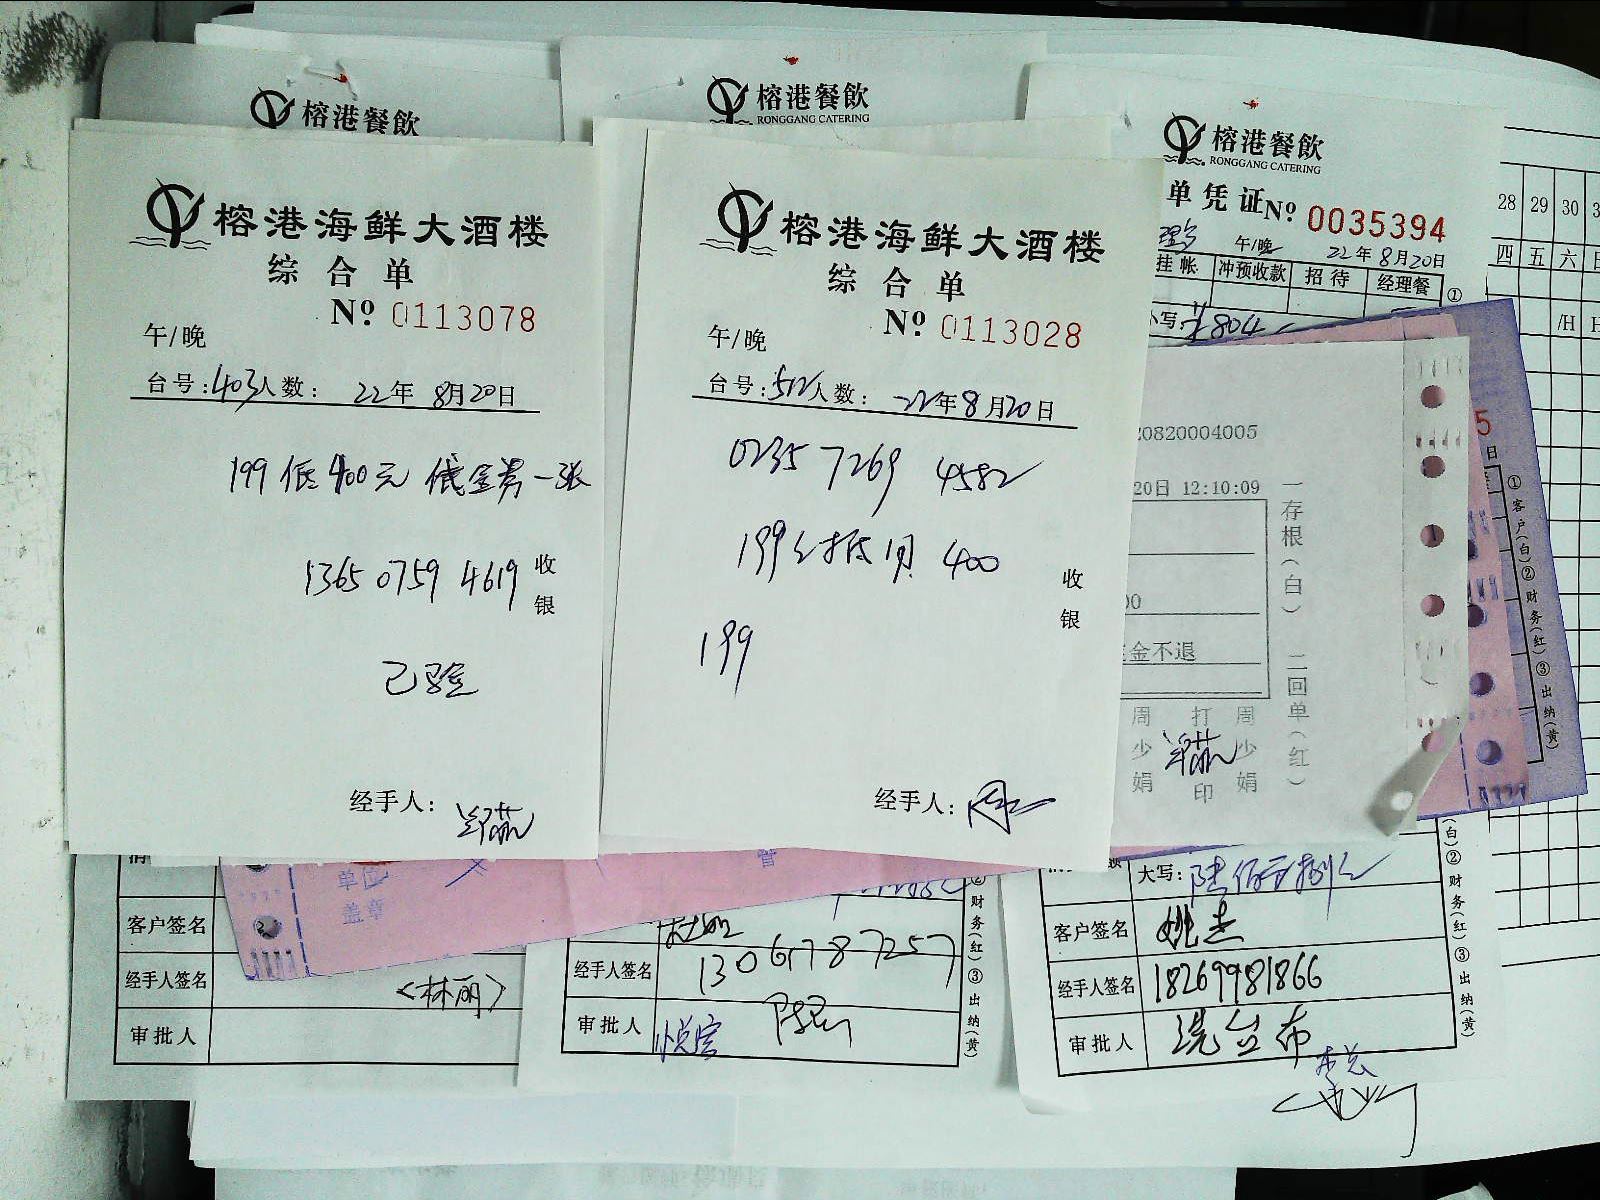 榕港餐飲
榕港海鲜大酒楼
综合单
Nº 0113078
午/晚
台号:403人数: 22年8月20日
199低400元 低金券一张
1365 0759 4619
收银
已验
经手人:
榕港餐飲
RONGGANG CATERING
榕港海鲜大酒楼
综合单
Nº 0113028
午/晚
台号:512人数: 22年8月20日
0235 7269 4582
199 抵用 400
收银
199
经手人:
榕港餐飲
RONGGANG CATERING
单凭证Nº 0035394
午/晚 22年8月20日
挂帐 冲预收款 招待 经理餐
小写:¥804
①
20820004005
20日 12:10:09
00
金不退
一存根(白) 二回单(红)
周少娟
打印
周少娟
5
日
①客户(白)②财务(红)③出纳(黄)
28 29 30
四 五 六 日
/H
单位
盖章
客户签名
经手人签名 <林丽>
审批人
经手人签名 13067787257
审批人 悦宾
②财务(红)③出纳(黄)
大写:
客户签名 姚杰
经手人签名 18269981866
审批人 洗台布
李总
(白)②财务(红)③出纳(黄)